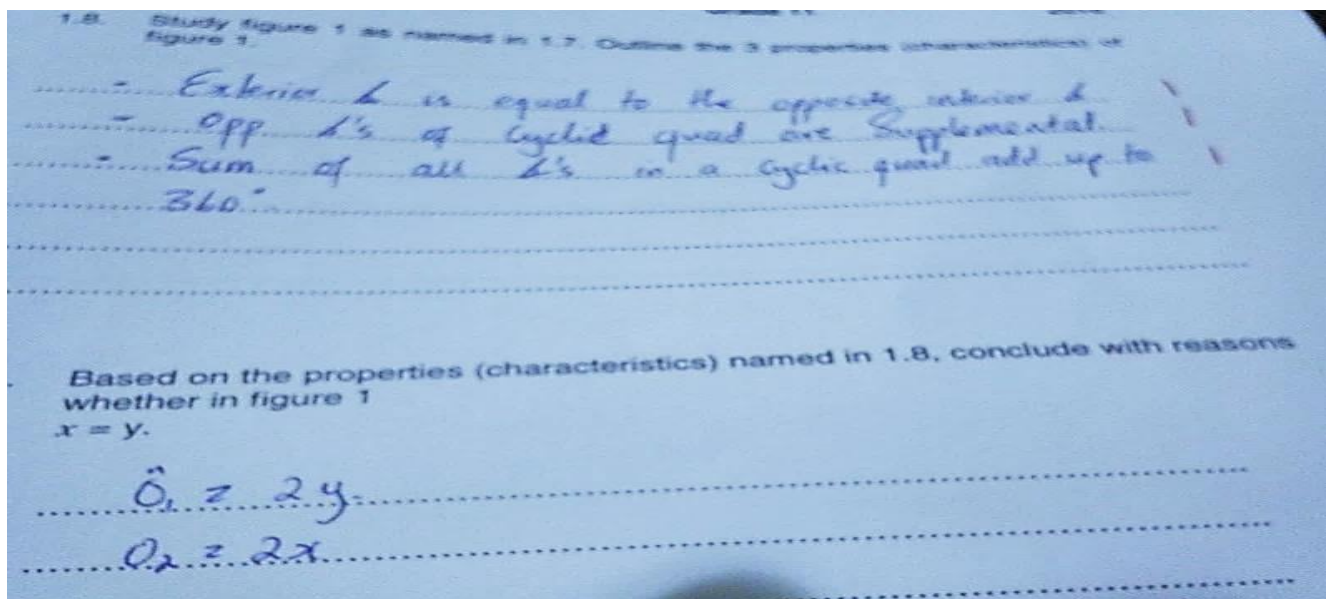 1.8. Study figure 1 as named in 1.7. Outline the 3 properties (characteristics) of
figure 1.
- Exterior ∠ is equal to the opposite interior ∠
- Opp ∠'s of Cyclic quad are Supplemental.
- Sum of all ∠'s in a Cyclic quad add up to
360°
Based on the properties (characteristics) named in 1.8, conclude with reasons
whether in figure 1
x = y.
Ô₁ = 2y
O₂ = 2x